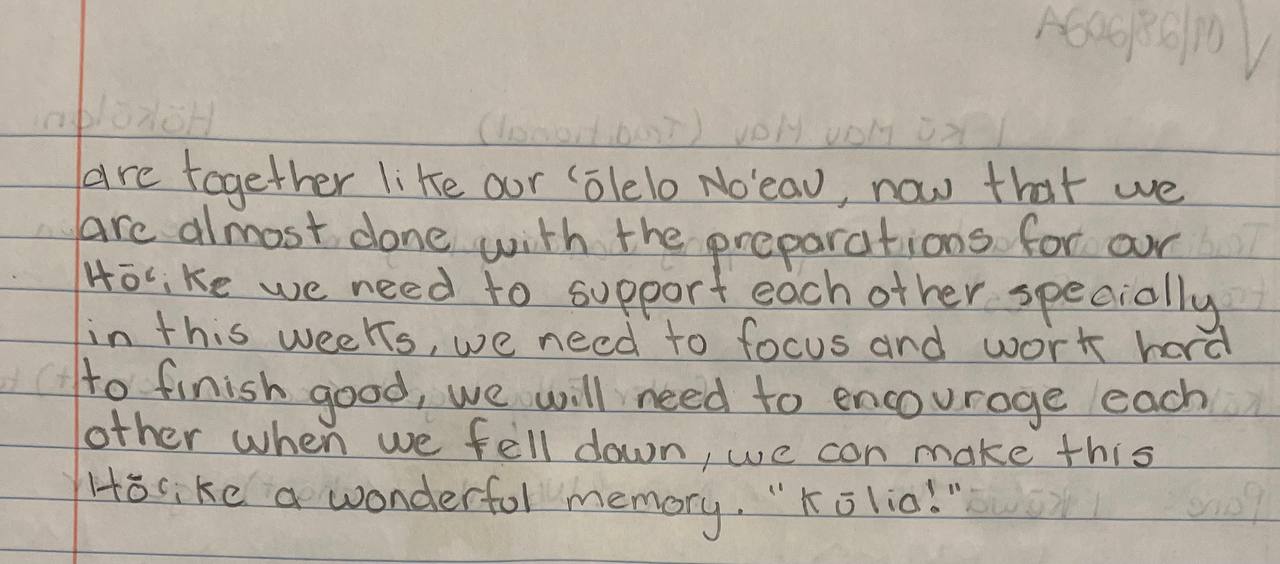 are together like our ‘ōlelo No'eau, now that we
are almost done with the preparations for our
Hō‘ike we need to support each other specially
in this weeks, we need to focus and work hard
to finish good, we will need to encourage each
other when we fell down, we can make this
Hō‘ike a wonderful memory. "Kūlia!"